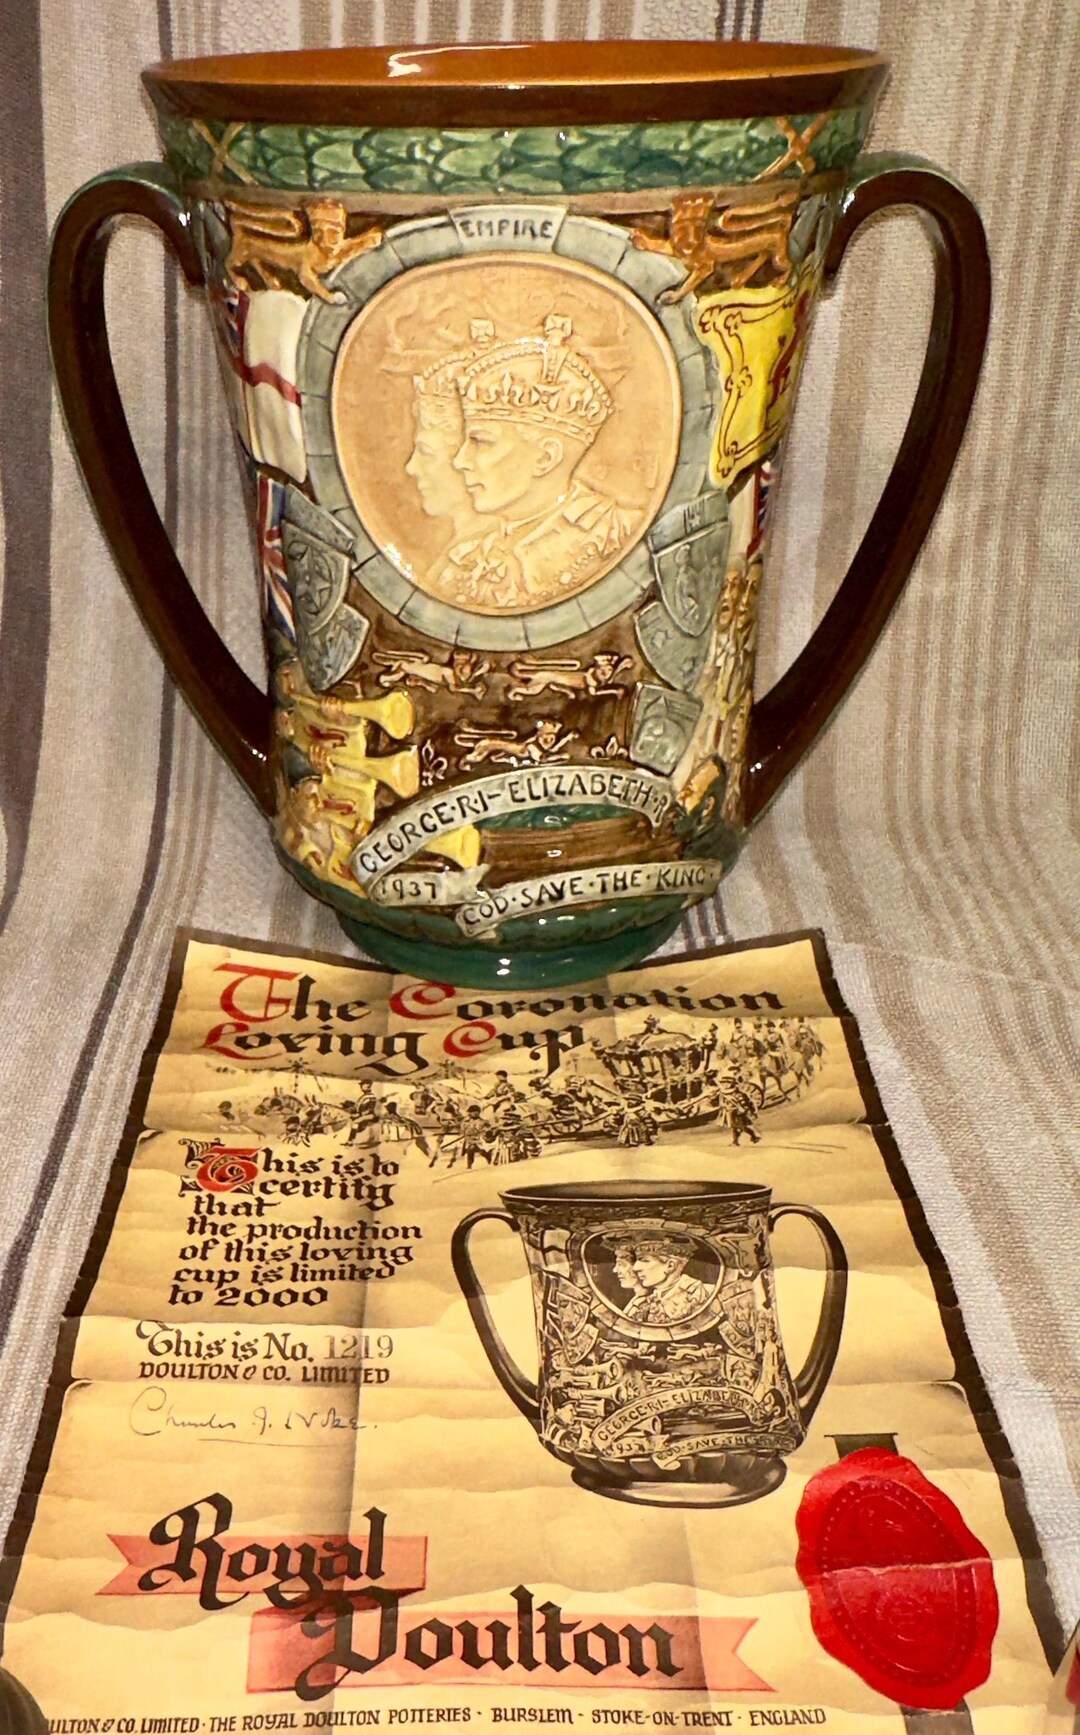 EMPIRE
GEORGE·R·I-ELIZABETH·R
1937
GOD·SAVE·THE·KING·
The Coronation
Loving Cup
This is to
certify
that
the production
of this loving
cup is limited
to 2000
This is No. 1219
DOULTON & CO. LIMITED
Charles J. Noke.
GEORGE·R·I-ELIZABETH
1937
GOD·SAVE·THE
Royal
Doulton
ULTON & CO. LIMITED · THE ROYAL DOULTON POTTERIES · BURSLEM · STOKE-ON-TRENT · ENGLAND